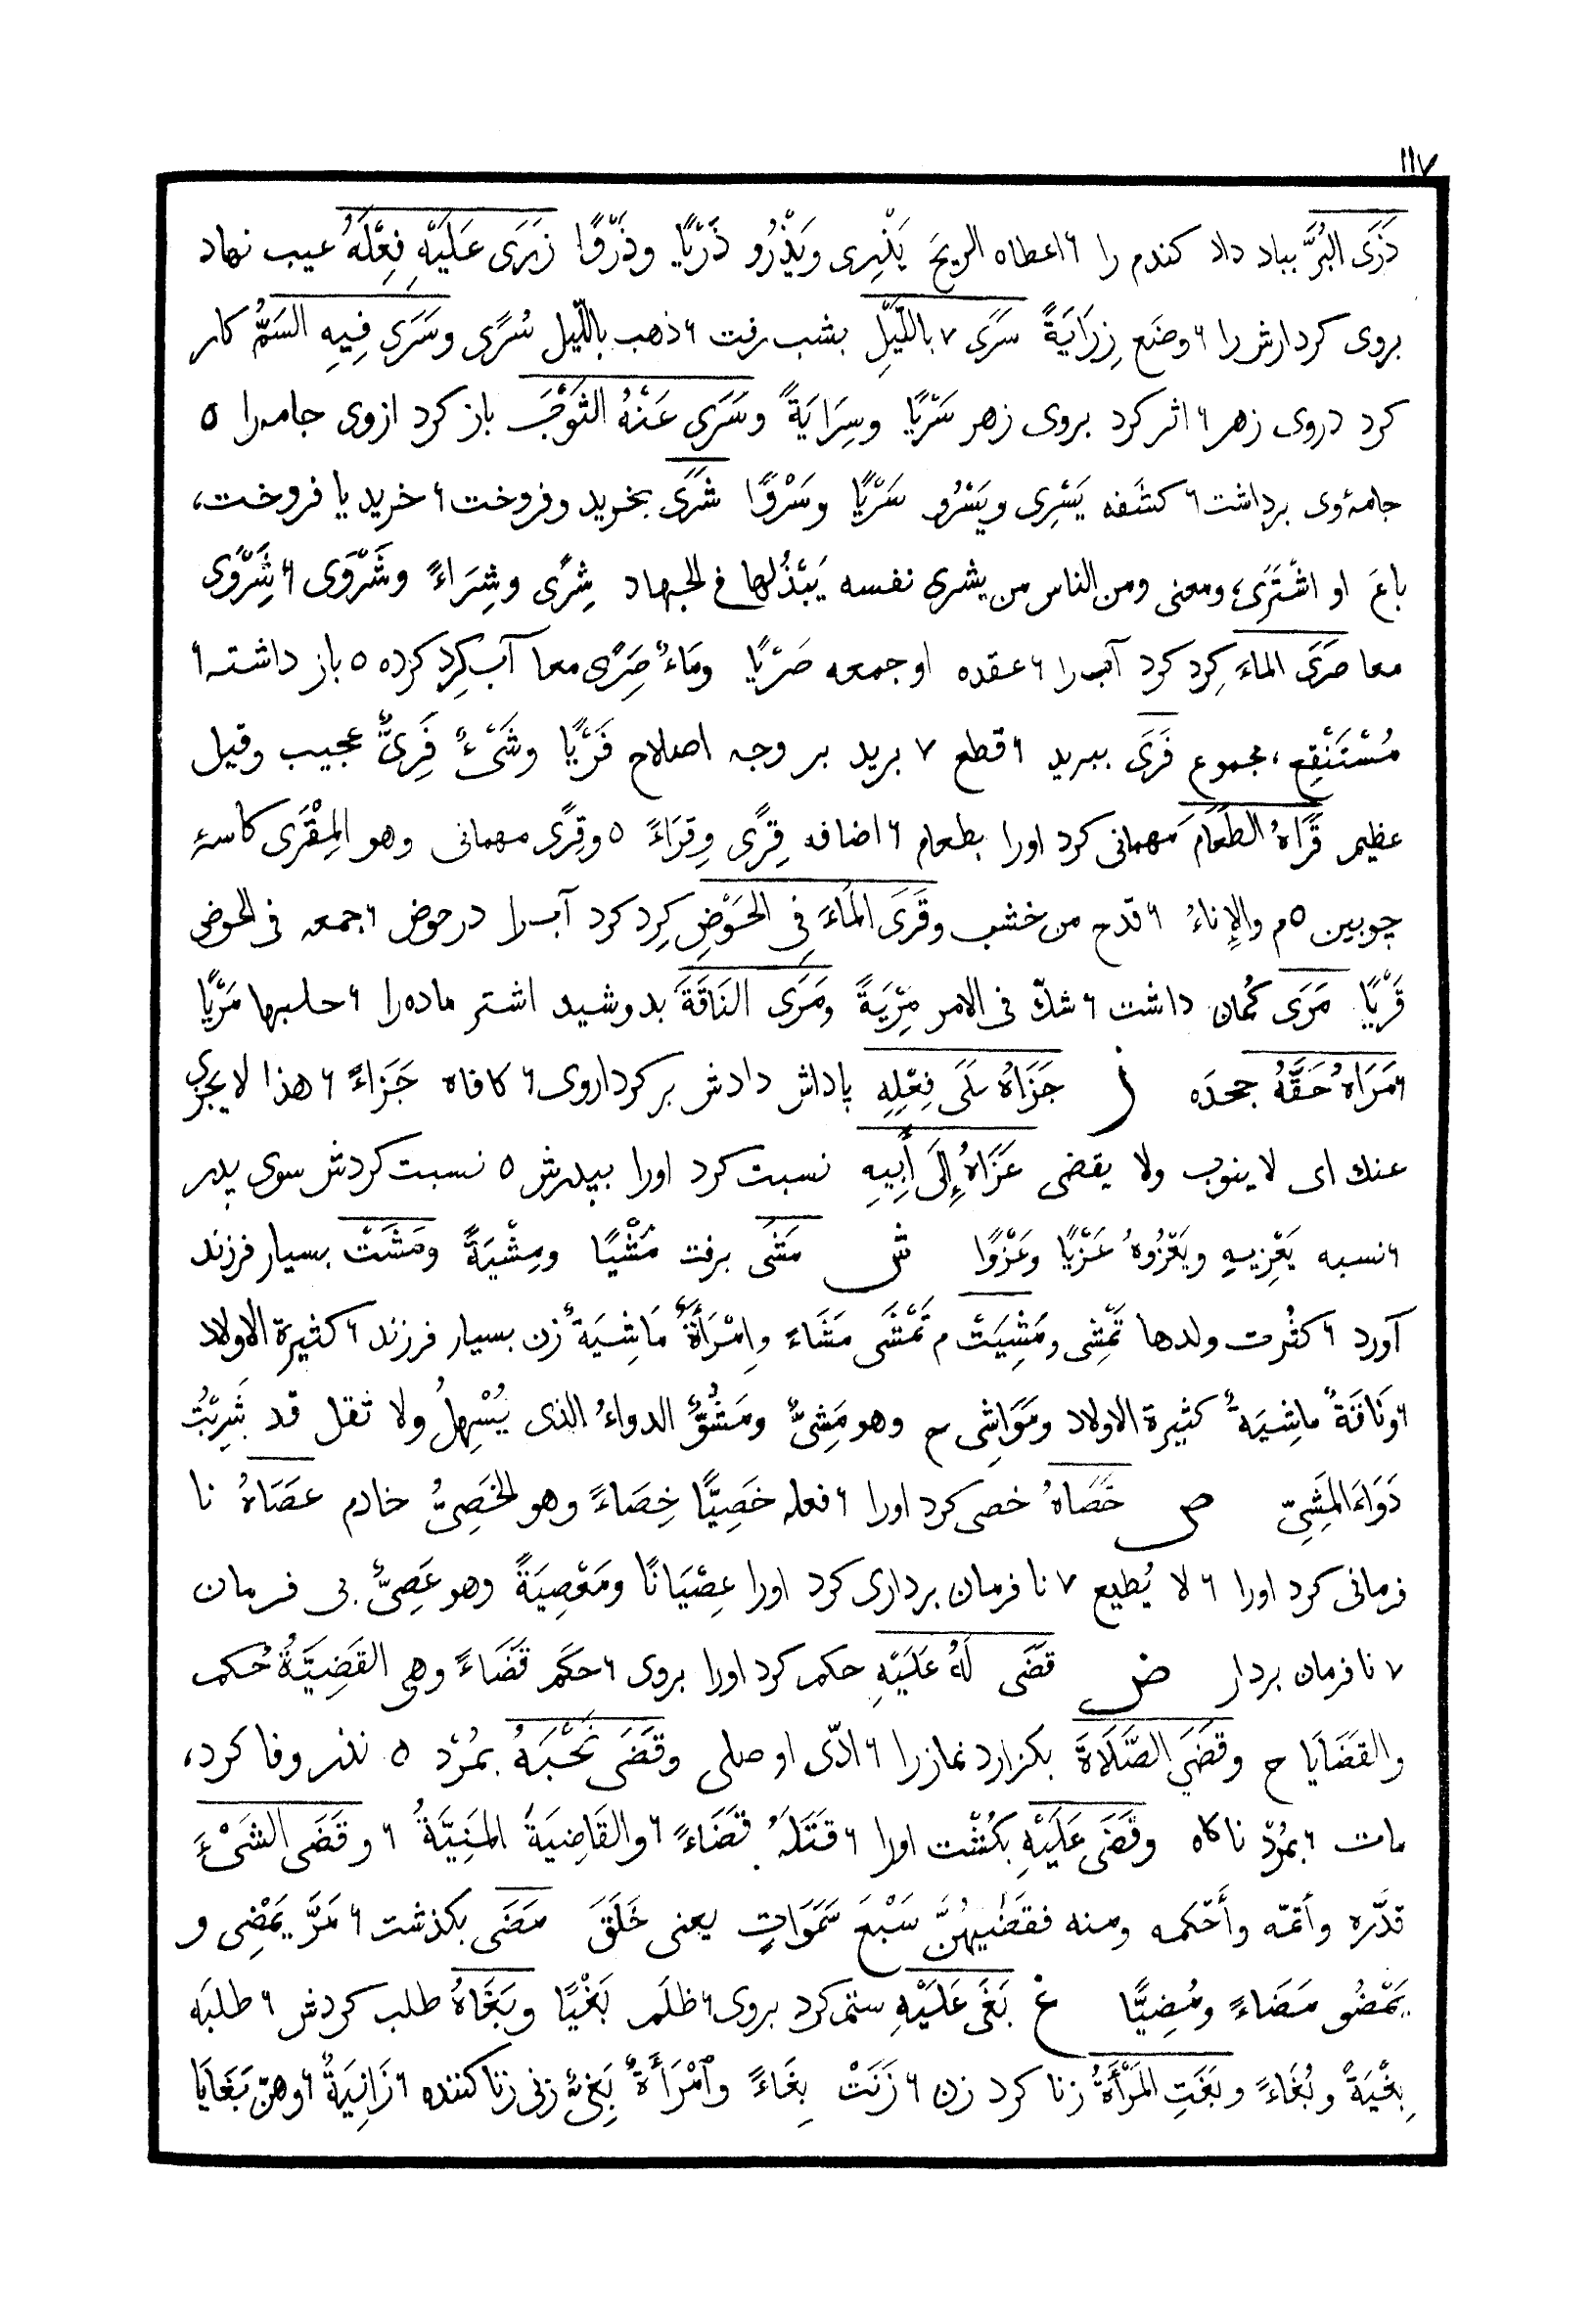 ١١٧
ذَرَى البُرَّ بباد داد كندم را ۶ اعطاه الريحَ يَذْرِى ويَذْرُو ذَرْيًا وذَرْوًا زَرَى عَلَيْهِ فِعْلَهُ عيب نهاد
بروى كردارش را ۶ وضَع زِرَايَةً سَرَى ٧ بِاللَّيْلِ بشب رفت ۶ ذهب بالليل سُرًى وسَرَى فِيهِ السَمُّ كار
كرد دروى زهر ۶ اثر كرد بروى زهر سَرْيًا وسِرَايَةً وسَرَى عَنْهُ الثَوْبَ باز كرد ازوى جامه را ٥
جامهٔ وى برداشت ۶ كشَفه يَسْرِى ويَسْرُو سَرْيًا وسَرْوًا شَرَى بخريد وفروخت ۶ خريد يا فروخت،
باعَ او اشْتَرَى، ومعنى ومن الناس من يشرى نفسه يَبْذُلها فى الجهاد شِرًى وشِرَاءً وشَرْوَى ۶ شِرْوَى
معا صَرَى الماءَ كِرد كرد آب را ۶ عقده او جمعه صَرْيًا ومَاءٌ صِرًى معا آب كِرد كرده ٥ باز داشته ۶
مُسْتَنْقِع، مجموع فَرَى ببريد ۶ قطع ٧ بريد بر وجه اصلاح فَرْيًا وشَىْءٌ فَرِىٌّ عجيب وقيل
عظيم قَرَاهُ الطَعَامَ مهمانى كرد اورا بطعام ۶ اضافه قِرًى وقِرَاءً ٥ وقِرًى مهمانى وهو المِقْرَى كاسهٔ
چوبين ٥ م والإناءُ ۶ قدح من خشب وقَرَى الماءَ فِى الحَوْضِ كِرد كرد آب را در حوض ۶ جمعه فى الحوض
قَرْيًا مَرَى كمان داشت ۶ شكّ فى الامر مِرْيَةً ومَرَى النَاقَةَ بدوشيد اشتر ماده را ۶ حلبها مَرْيًا
۶ مَرَاهُ حَقَّهُ جحدَه ز جَزَاهُ عَلَى فِعْلِهِ پاداش دادش بر كردار وى ۶ كافاه جَزَاءً ۶ هذا لا يجزى
عنك اى لا ينوب ولا يقضى عَزَاهُ إِلَى أَبِيهِ نسبت كرد اورا بپدرش ٥ نسبت كردش سوى پدر
۶ نسبه يَعْزِيهِ ويَعْزُوهُ عَزْيًا وعَزْوًا ش مَشَى برفت مَشْيًا ومِشْيَةً ومَشَتْ بسيار فرزند
آورد ۶ كثُرت ولدها تَمْشِى ومَشِيَتْ م تَمْشَى مَشَاءً وامْرَأَةٌ مَاشِيَةٌ زن بسيار فرزند ۶ كثيرة الاولاد
۶ ونَاقَةٌ ماشِيَةٌ كثيرة الاولاد ومَوَاشِى ج وهو مَشِىٌّ ومَشُوٌّ الدواءُ الذى يُسْهِلُ ولا تقل قد شَرِبْتُ
دَوَاءَ المَشِىّ ص خَصَاهُ خصى كرد اورا ۶ فعله خَصِيًّا خِصَاءً وهو الخَصِىُّ خادم عَصَاهُ نا
فرمانى كرد اورا ۶ لا يُطيع ٧ نا فرمان بردارى كرد اورا عِصْيَانًا ومَعْصِيَةً وهو عَصِىٌّ بى فرمان
٧ نا فرمان بردار ض قَضَى لَهُ عَلَيْهِ حكم كرد اورا بروى ۶ حكَم قَضَاءً وهى القَضِيَّةُ حُكم
والقَضَايَا ج وقَضَى الصَّلَاةَ بكزارد نماز را ۶ ادّى او صلى وقَضَى نَحْبَهُ بمُرْد ٥ نذر وفا كرد،
مات ۶ بمُرْد ناكاه وقَضَى عَلَيْهِ بكُشْت اورا ۶ قتَلَهُ قَضَاءً ۶ والقَاضِيَةُ المَنِيَّةُ ۶ وقَضَى الشَىْءَ
قدَّره وأتمّه وأَحْكمه ومنه فقضٰيهُنَّ سَبْعَ سَمَوَاتٍ يعنى خَلَقَ مَضَى بكذشت ۶ مَرَّ يَمْضِى و
يَمْضُو مَضَاءً ومُضِيًّا غ بَغَى عَلَيْهِ ستم كرد بروى ۶ ظلَم بَغْيًا وبَغَاهُ طلب كردش ۶ طلبَه
بِغْيَةً وبُغَاءً وبَغَتِ المَرْأَةُ زنا كرد زن ۶ زَنَتْ بِغَاءً وٱمْرَأَةٌ بَغِىٌّ زنى زنا كننده ۶ زَانِيَةٌ ۶ وهنّ بَغَايَا